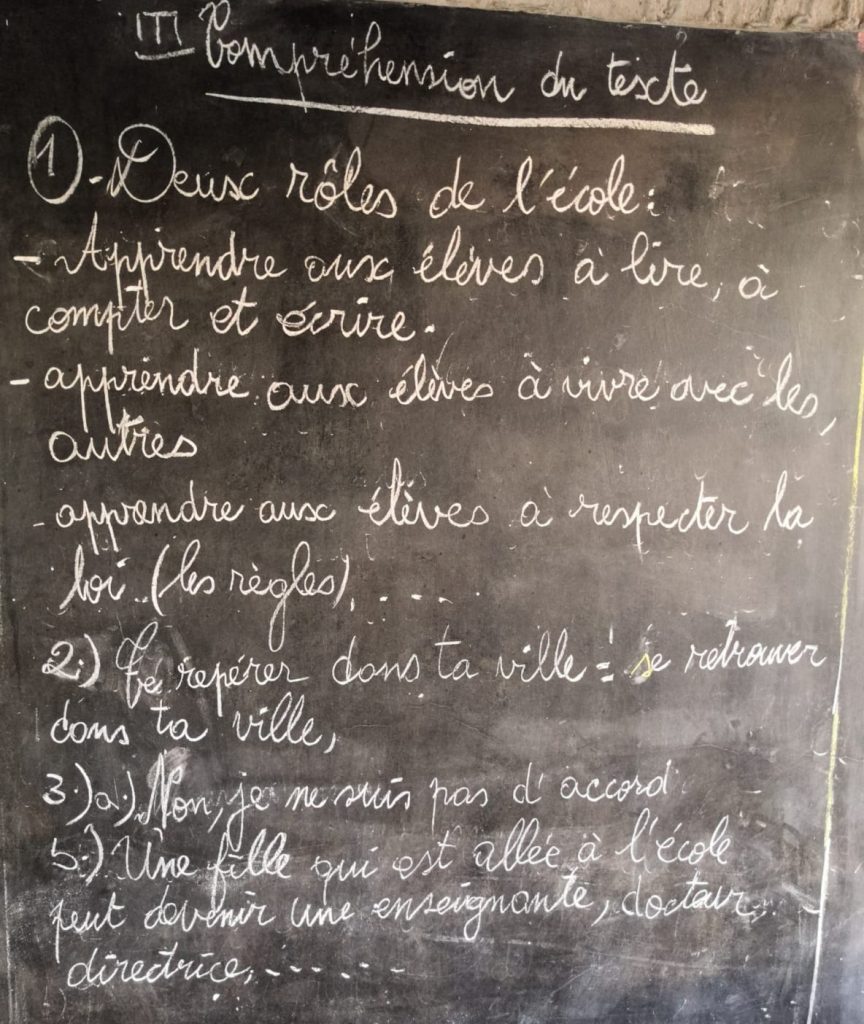 III Compréhension du texte
1 - Deux rôles de l'école :
- Apprendre aux élèves à lire, à
compter et écrire.
- apprendre aux élèves à vivre avec les
autres
- apprendre aux élèves à respecter la
loi (les règles), ....
2.) Te repérer dans ta ville = se retrouver
dans ta ville,
3.) a.) Non, je ne suis pas d'accord
5.) Une fille qui est allée à l'école
peut devenir une enseignante, docteur,
directrice, .......